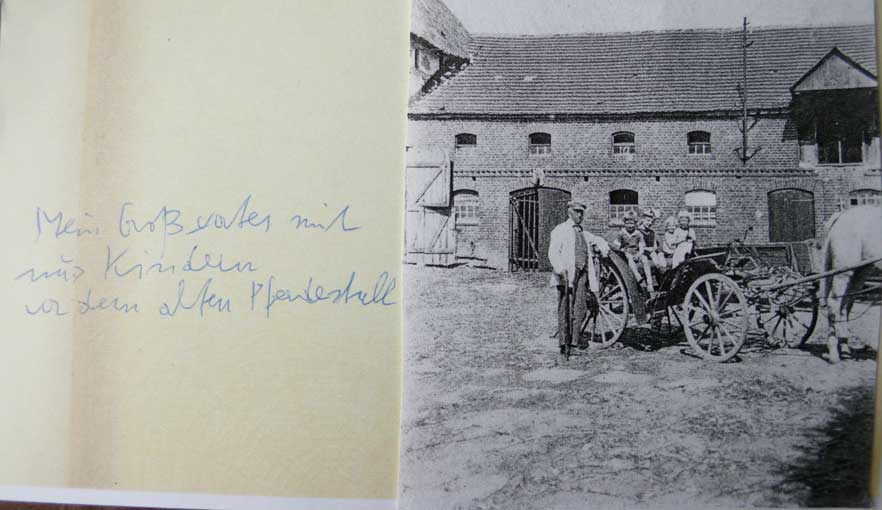 Mein Großvater mit
uns Kindern
vor dem alten Pferdestall